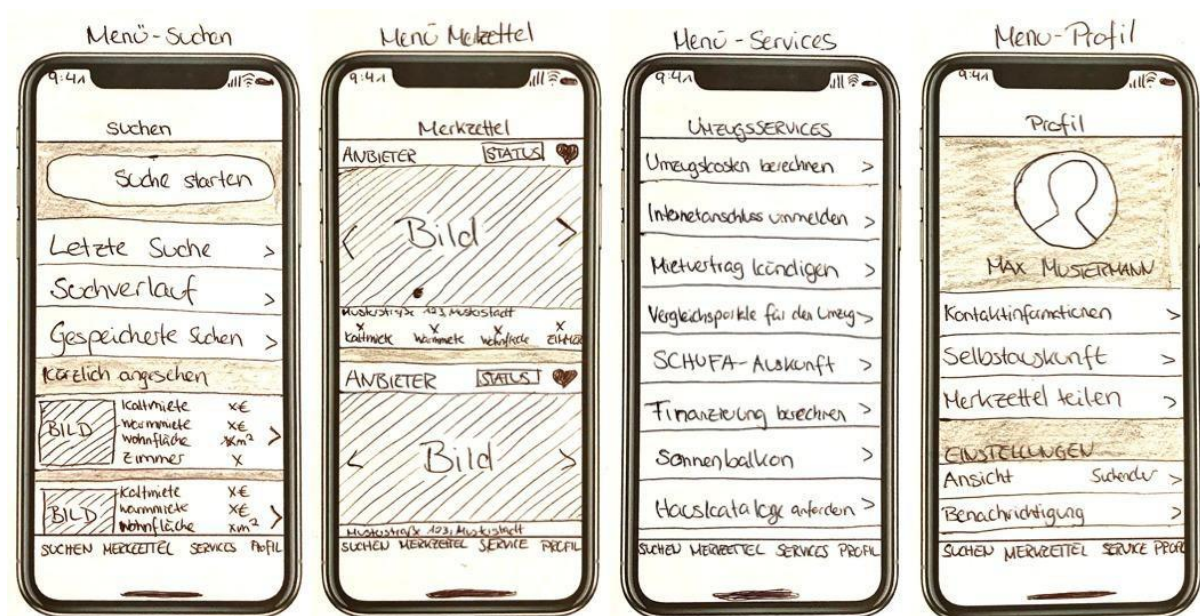 Menü-Suchen
9:41
Suchen
Suche starten
Letzte Suche >
Suchverlauf >
Gespeicherte Suchen >
Kürzlich angesehen
BILD
Kaltmiete x€
Warmmiete x€
Wohnfläche xm²
Zimmer x
>
BILD
Kaltmiete x€
Warmmiete x€
Wohnfläche xm²
>
SUCHEN MERKZETTEL SERVICES PROFIL
Menü Merkzettel
9:41
Merkzettel
ANBIETER STATUS
< Bild >
Musterstraße 123, Musterstadt
x x x x
Kaltmiete Warmmiete Wohnfläche ZIMMER
ANBIETER STATUS
< Bild >
Musterstraße 123, Musterstadt
SUCHEN MERKZETTEL SERVICE PROFIL
Menü-Services
9:41
UMZUGSSERVICES
Umzugskosten berechnen >
Internetanschluss ummelden >
Mietvertrag kündigen >
Vergleichsportale für den Umzug >
SCHUFA-Auskunft >
Finanzierung berechnen >
Sonnenbalkon >
Hauskataloge anfordern >
SUCHEN MERKZETTEL SERVICES PROFIL
Menu-Profil
9:41
Profil
MAX MUSTERMANN
Kontaktinformationen >
Selbstauskunft >
Merkzettel teilen >
EINSTELLUNGEN
Ansicht Suchender >
Benachrichtigung >
SUCHEN MERKZETTEL SERVICE PROFIL